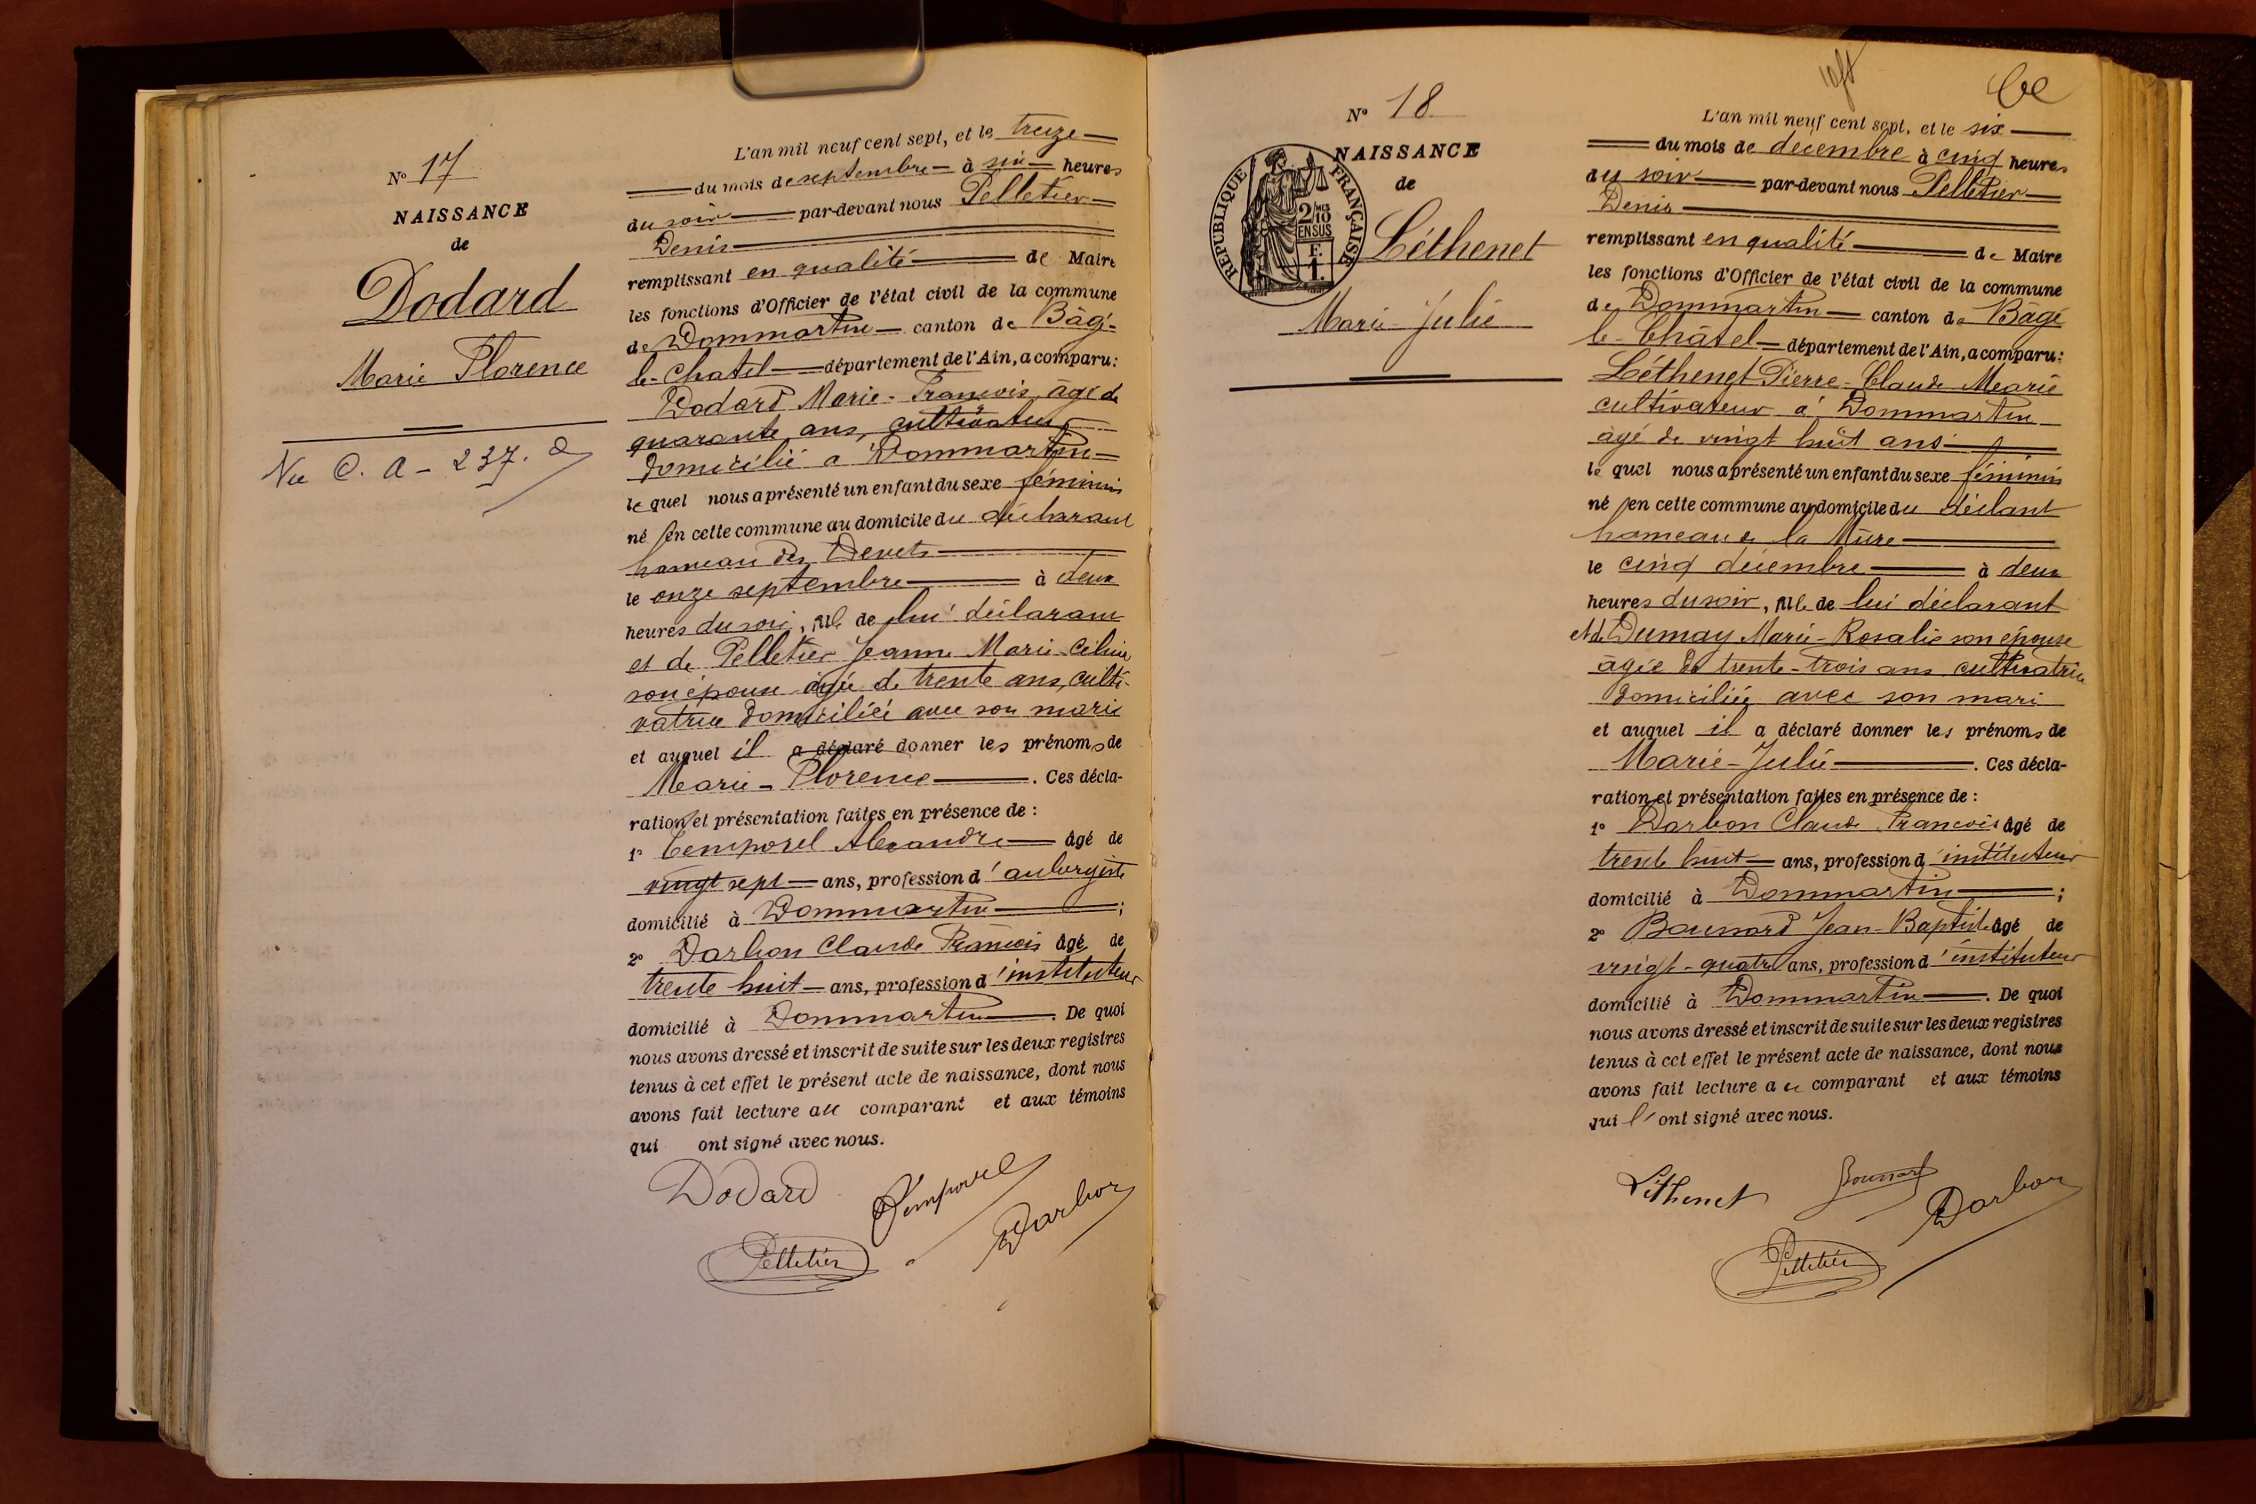 N° 17
NAISSANCE
de
Dodard
Marie Florence
Née C. A - 237.
L'an mil neuf cent sept, et le treize
du mois de septembre à six heures
du soir par-devant nous Pelletier
Denis
remplissant en qualité de Maire
les fonctions d'Officier de l'état civil de la commune
de Dommartin canton de Bâgé-
le-Chatel département de l'Ain, a comparu:
Dodard Marie-François, âgé de
quarante ans, cultivateur
domicilié a Dommartin
lequel nous a présenté un enfant du sexe féminin
né en cette commune au domicile du déclarant
hameau des Devets
le onze septembre à deux
heures du soir, fille de lui déclarant
et de Pelletier Jeanne Marie-Céline
son épouse âgée de trente ans, culti-
vatrice domiciliée avec son marie
et auquel il a déclaré donner les prénoms de
Marie-Florence. Ces décla-
ration et présentation faites en présence de :
1° Temporel Alexandre âgé de
vingt sept ans, profession d'aubergiste
domicilié à Dommartin ;
2° Darbon Claude François âgé de
trente huit ans, profession d'instituteur
domicilié à Dommartin. De quoi
nous avons dressé et inscrit de suite sur les deux registres
tenus à cet effet le présent acte de naissance, dont nous
avons fait lecture au comparant et aux témoins
qui ont signé avec nous.
Dodard Temporel
Pelletier Darbon
N° 18
NAISSANCE
de
REPUBLIQUE FRANÇAISE
2/10 MES
EN SUS
F.
1.
Léthenet
Marie Julie
L'an mil neuf cent sept, et le six
du mois de décembre à cinq heures
du soir par-devant nous Pelletier
Denis
remplissant en qualité de Maire
les fonctions d'Officier de l'état civil de la commune
de Dommartin canton de Bâgé
le-Châtel département de l'Ain, a comparu:
Léthenet Pierre-Claude Marie
cultivateur à Dommartin
âgé de vingt huit ans
le quel nous a présenté un enfant du sexe féminin
né en cette commune au domicile du déclant
hameau de la Mûre
le cinq décembre à deux
heures du soir, fille de lui déclarant
et de Dumay Marie-Rosalie son épouse
âgée de trente-trois ans cultivatrice
domiciliée avec son mari
et auquel il a déclaré donner les prénoms de
Marie-Julie. Ces décla-
ration et présentation faites en présence de :
1° Darbon Claude François âgé de
trente huit ans, profession d'instituteur
domicilié à Dommartin ;
2° Bournard Jean-Baptiste âgé de
vingt-quatre ans, profession d'instituteur
domicilié à Dommartin. De quoi
nous avons dressé et inscrit de suite sur les deux registres
tenus à cet effet le présent acte de naissance, dont nous
avons fait lecture au comparant et aux témoins
qui l'ont signé avec nous.
Léthenet Bournard Darbon
Pelletier